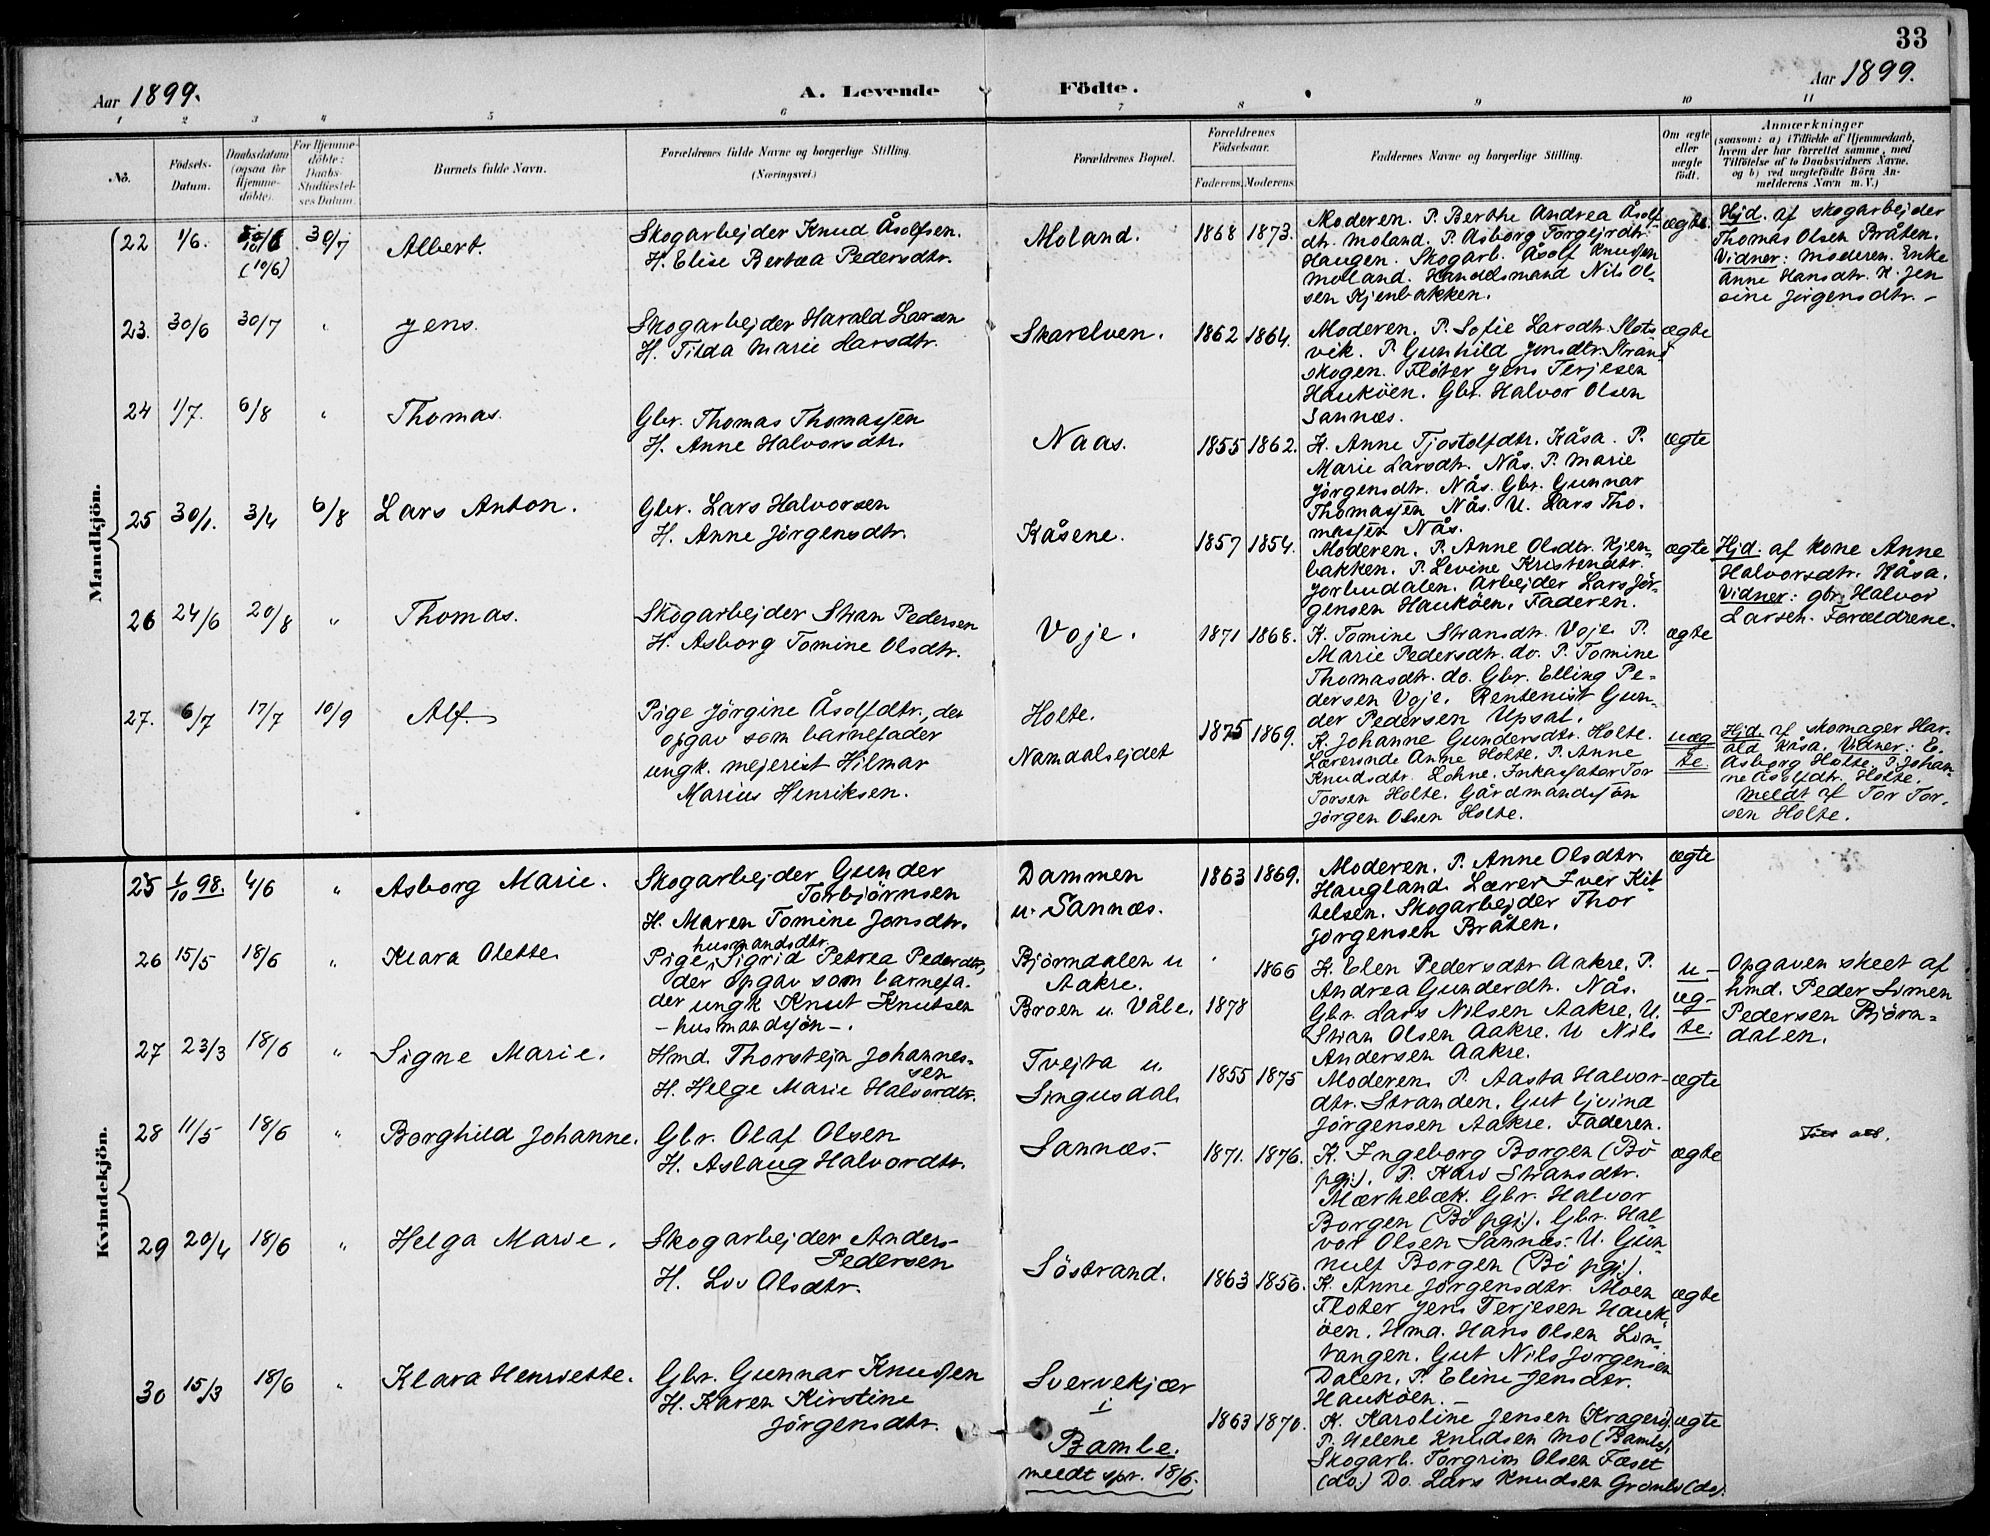 33
Aar 1899.
A. Levende Födte.
Aar 1899.
1 2 3 4 5 6 7 8 9 10 11
No.
Födsels-
Datum.
Daabsdatum
(ogsaa for
Hjemme-
döbte).
For Hjemme-
döbte:
Daabs-
Stadfæstel-
ses Datum.
Barnets fulde Navn.
Forældrenes fulde Navne og borgerlige Stilling.
(Næringsvei.)
Forældrenes Bopæl.
Forældrenes
Födselsaar.
Faderens. Moderens.
Faddernes Navne og borgerlige Stilling.
Om ægte
eller
uægte
födt.
Anmærkninger
(saasom: a) i Tilfælde af Hjemmedaab,
hvem der har forrettet samme, med
Tilföielse af to Daabsvidners Navne.
og b) ved uægtefödte Börn An-
melderens Navn m. V.)
Mandkjön.
22 1/6. (10/6) 30/7 Albert.
Skogarbejder Knud Åsolfsen.
H. Elise Bertea Pedersdtr.
Moland. 1868 1873.
Moderen. P. Berthe Andrea Åsolf
dtr. Moland. P. Asborg Torgejrdtr.
Haugen. Skogarb. Åsolf Knudsen
Moland. Handelsmand Nils Ol-
sen Kjenbakken.
ægte.
Hjd. af skogarbejder
Thomas Olsen Bråten.
Vidner: Moderen. Enke
Anne Hansdtr. H. Jen
sine Jörgensdtr. -
23. 30/6 30/7 " Jens.
Skogarbejder Harald Larsen
H. Tilda Marie Hansdtr.
Skarelven. 1862 1864.
Moderen. P. Sofie Larsdtr. Slots
vik. P. Gunhild Jonsdtr. Strand
skogen. Flöter Jens Terjesen
Hauköen. Gbr. Halvor Olsen
Sannæs.
ægte
24 1/7. 6/8 " Thomas.
Gbr. Thomas Thomassen
H. Anne Halvorsdtr.
Naas. 1855 1862.
K. Anne Tjostolfdtr. Kåsa. P.
Marie Larsdtr. Nås. P. Marie
Jörgensdtr. Nås. Gbr. Gunnar
Thomassen Nås. U. Lars Tho-
massen Nås.
ægte
25 30/1. 3/4 6/8 Lars Anton.
Gbr. Lars Halvorsen
H. Anne Jörgensdtr.
Kåsene. 1857 1854.
Moderen. P. Anne Olsdtr. Kjen-
bakken. P. Levine Kristendtr.
Jorbudalen. Arbejder Lars Jör-
gensen Hauköen. Faderen.
ægte
Hjd. af kone Anne
Halvorsdtr. Kåsa.
Vidner: gbr. Halvor
Larsen. Forældrene.
26 24/6 20/8 " Thomas.
Skogarbejder Stian Pedersen
H. Asborg Tomine Olsdtr.
Voje. 1871 1868.
K. Tomine Stiansdtr. Voje. P.
Marie Pedersdtr. do. P. Tomine
Thomasdtr. do. Gbr. Elling Pe-
dersen Voje. Rentenist Gun-
der Pedersen Upsal.
ægte
27. 6/7 17/7 10/9 Alf.
Pige Jörgine Åsolfdtr., der
opgav som barnefader
ungk. mejerist Hilmar
Marius Henriksen.
Holte.
Namdalsejdet
1875 1869.
K. Johanne Gundersdtr. Holte.
Lærerinde Anne Holte. P. Anne
Knudsdtr. Lohne. Inkassator Tor
Torsen Holte. Gårdmandssön
Jörgen Olsen Holte.
uæg
te.
Hjd. af skomager Har-
ald Kåsa. Vidner: E.
Asborg Holte. P. Johan-
ne Åsolfdtr. Holte.
Meldt af Tor Tor-
sen Holte.
Kvindekjön.
25 1/10 98. 4/6 " Asborg Marie.
Skogarbejder Gunder
Torbjörnsen
H. Maren Tomine Jonsdtr.
Dammen
u. Sannæs.
1863 1869.
Moderen. P. Anne Olsdtr.
Haugland. Lærer Iver Kit-
telsen. Skogarbejder Thor
Jörgensen Bråten.
ægte
26 15/5 18/6 " Klara Olette
husmandsdtr.
Pige Sigrid Petrea Pedersdtr,
der opgav som barnefa-
der ungk Knut Knutsen
- husmandssön -.
Björndalen u
Aakre.
Broen u. Våbe. 1878
1866
K. Elen Pedersdtr Aakre. P.
Andrea Gunderdtr. Nås.
Gbr. Lars Nilsen Aakre. U.
Stian Olsen Aakre. U Nils
Andersen Aakre.
u-
æg-
te.
Opgaven skeet af
hmd. Peder Simen
Pedersen Björn-
dalen.
27 23/3 18/6 " Signe Marie.
Hmd. Thorstejn Johannes-
sen
H. Helge Marie Halvordtr.
Tvejta u.
Singusdal.
1855 1875
Moderen. P. Aasta Halvor-
dtr. Stranden. Gut Ejvind
Jörgensen Aakre. Faderen.
ægte
28 11/5 18/6 " Borghild Johanne.
Gbr. Olaf Olsen
H. Aslaug Halvordtr.
Sannæs. 1871. 1876.
K. Ingeborg Borgen (Bö
pgj.). P. Kari Stiansdtr.
Mærkebæk. Gbr. Halvor
Borgen (Bö pgj). Gbr. Hal-
vor Olsen Sannæs. U. Gun-
nulf Borgen (Bö pgj).
ægte
29 20/4 18/6 " Helga Marie.
Skogarbejder Anders
Pedersen
H. Liv Olsdtr.
Söstrand. 1863 1856.
K. Anne Jörgensdtr. Moen
Flöter Jens Terjesen Hauk-
öen. Hmd. Hans Olsen Lon-
tangen. Gut Nils Jörgensen
Dalen. P. Eline Jensdtr.
Hauköen. -
ægte
30 15/3 18/6 " Klara Henriette.
Gbr. Gunnar Knudsen
H. Karen Kirstine
Jörgensdtr.
Svenekjær
i
Bamle.
meldt spr. 18/6.
1863 1870.
K. Karoline Jensen (Kragerö)
P. Helene Knudsen Mo (Bamle).
Skogarb. Torgrim Olsen Fæset
(do) Do. Lars Knudsen Grönli (do).
ægte